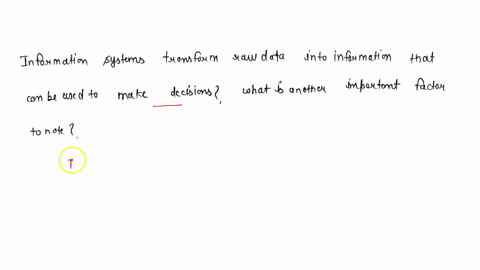 Information systems transform raw data into information that
can be used to make decisions?. what is another important factor
to note?.
T